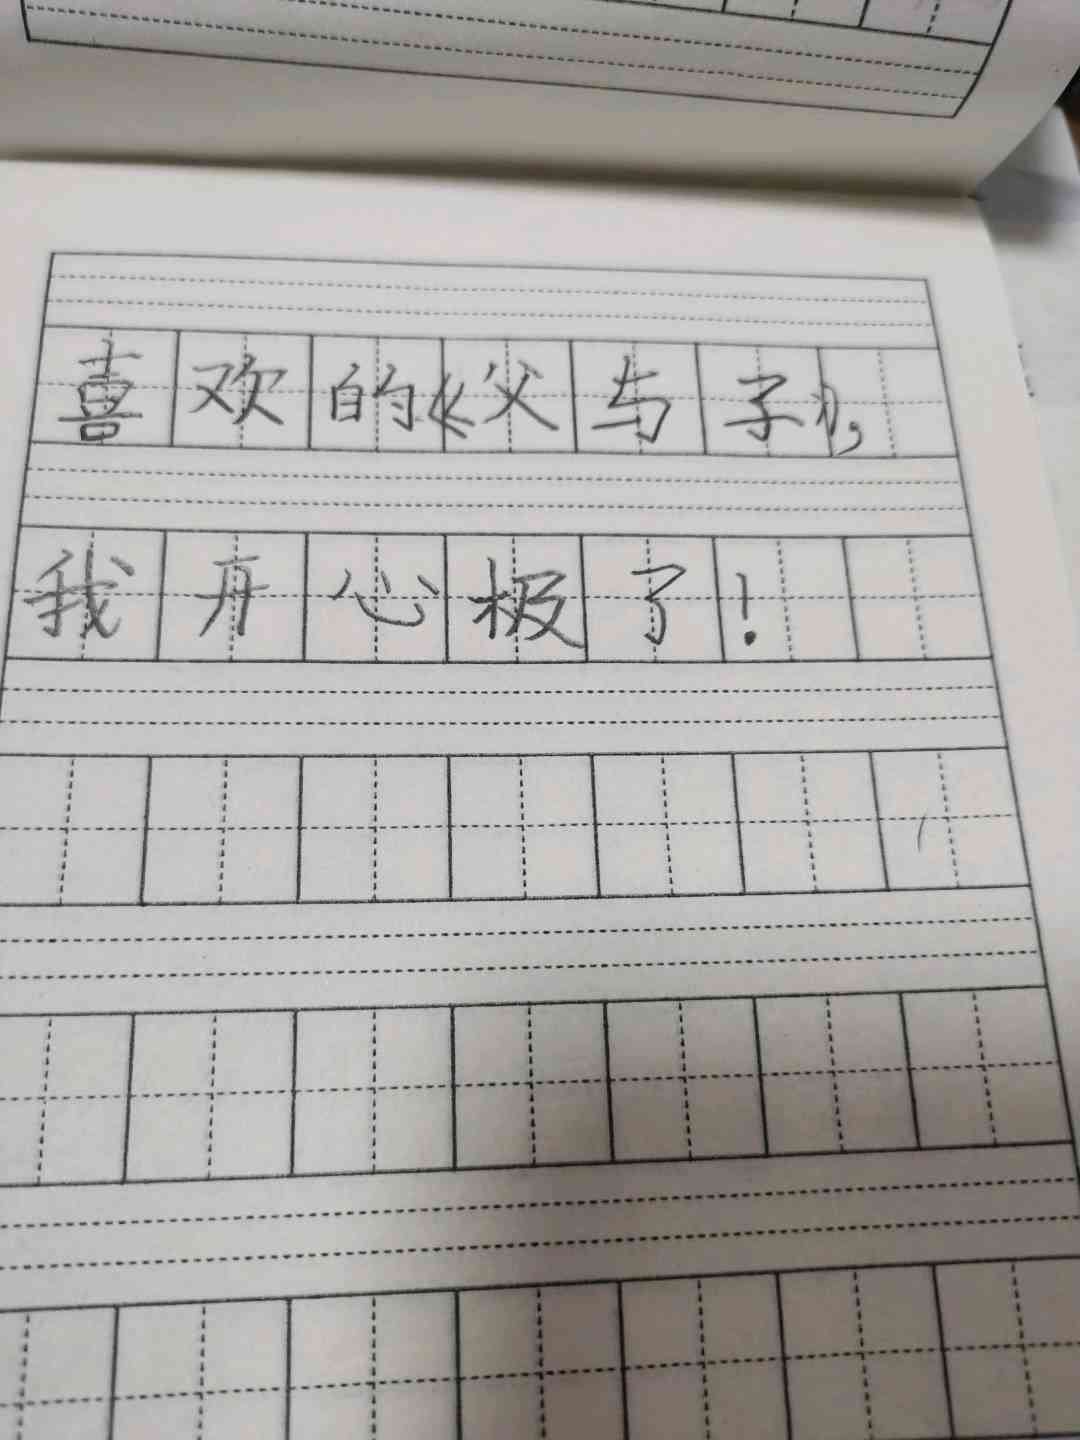 喜欢的《父与子》，
我开心极了！